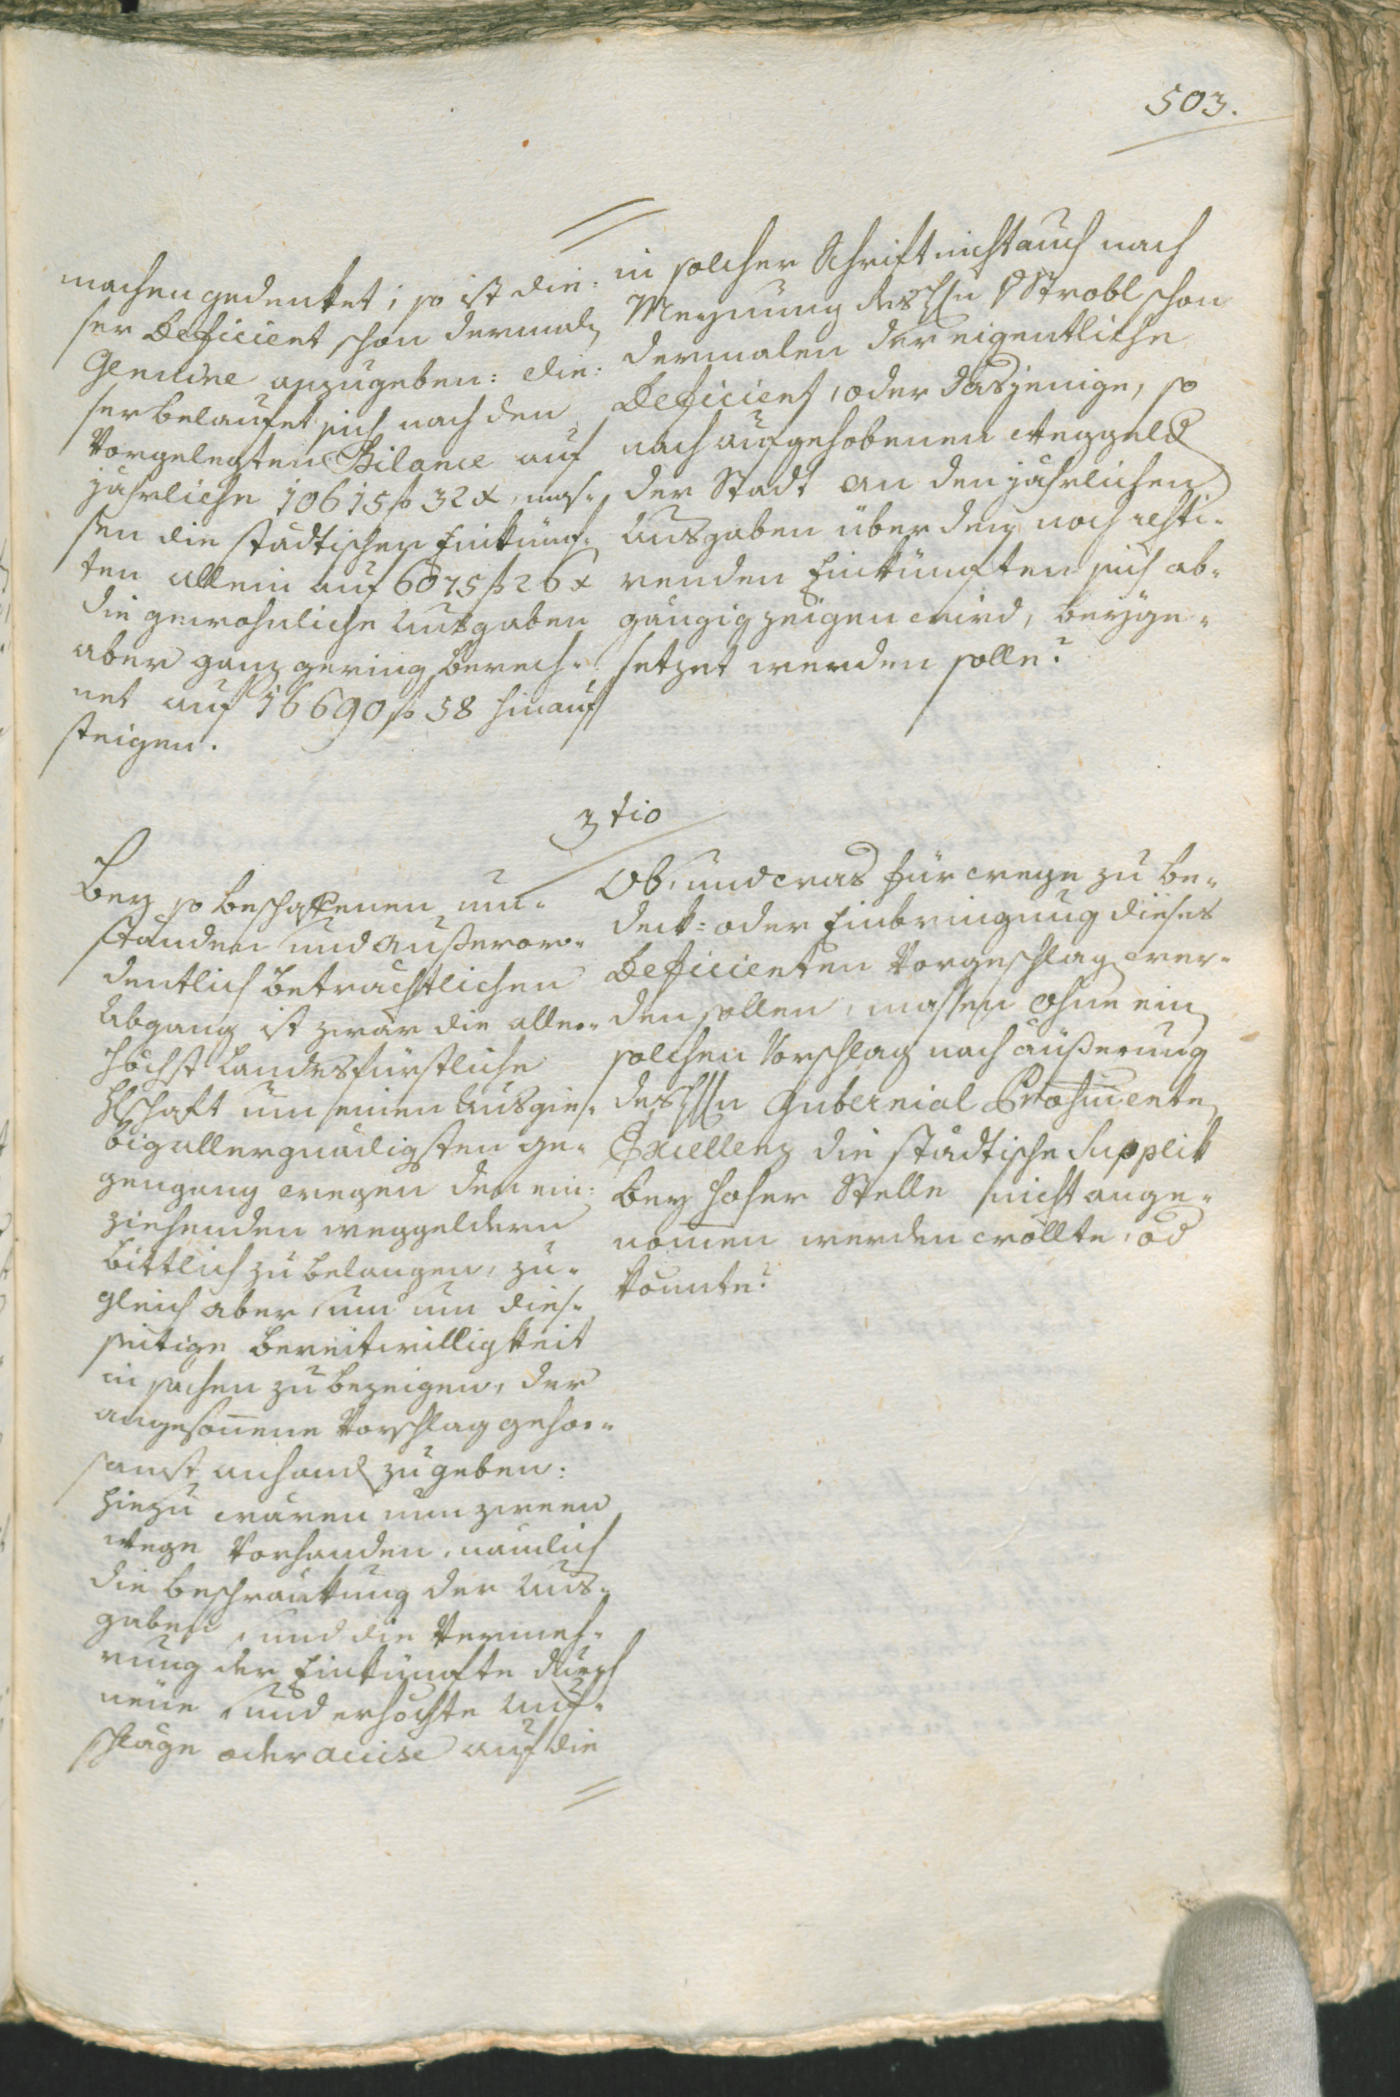 503.
machen gedenket; so ist die:
ser Deficient schon dermaln
Genuine anzugeben: die:
ser belaufet sich nach den
Vorgelegten Bilance auf
jährliche 10615 f 32 x, mas-
sen die städtischen Einkünf-
ten allein auf 6075 f 26 x
die gewohnliche Ausgaben
aber ganz gering berech-
net auf 16690 f 58 hinauf
steigen.
in solcher Schrift nicht auch nach
Meynung des Hn D Strobl schon
dermalen der eigentliche
Deficient, oder dasjenige, so
nach aufgehobenen Weggeld
der Stadt an den jährlichen
Ausgaben über den noch resti-
renden Einkünften sich ab-
gängig zeigen wird, beyge-
setzet werden solle?
3tio
Bey so beschaffenen um-
ständen und außeror-
dentlich beträchtlichen
Abgang ist zwar die aller-
höchst Landesfürstliche
Hschaft um seinen Ausgie-
big allergnädigsten ge-
gengang wegen den ein:
ziehenden weggeldern
bittlich zu belangen, zu-
gleich aber, um um dies-
seitige bereitwilligkeit
in sachen zu bezeigen, der
angesonnene Vorschlag gehor-
samst anhand zu geben:
hiezu wären nun zween
Wege vorhanden, nämlich
die beschränkung der Aus-
gaben, und die Vermeh-
rung der Einkünfte durch
neue, und erhöhte Auf-
schläge oder accise auf die
Ob, und was für wege zu be-
deck- oder Einbringung dieses
Deficienten Vorgeschlagen wer-
den sollen, massen ohne ein
solchen Vorschlag nach äußerung
des Hn Gubernial
Excellenz die städtische Supplik
bey hoher Stelle nicht ange-
nommen werden wollte, od
könnte?